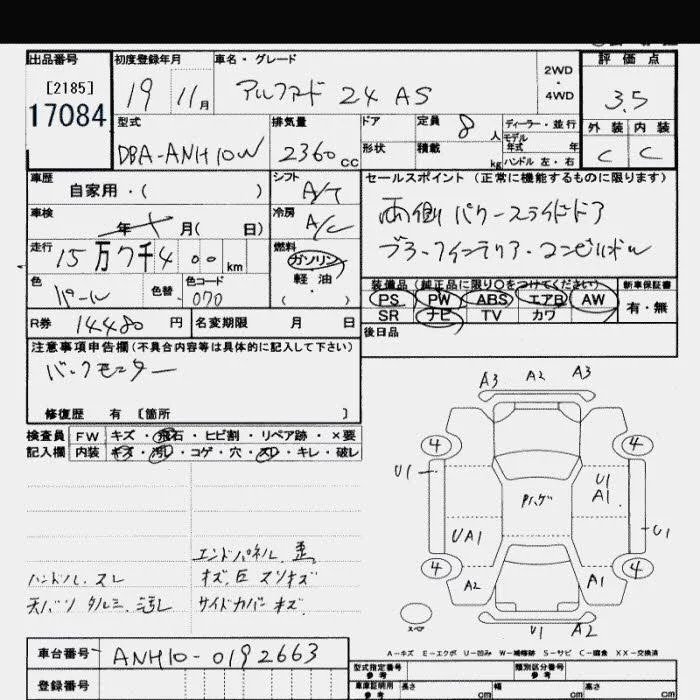 出品番号 初度登録年月 車名・グレード 評価点
[2185]
17084
19 11月 アルファード 24 AS 2WD・4WD 3.5
外装 内装
C C
型式 排気量 ドア 定員 8人 ディーラー・並行
モデル年式 年
DBA-ANH10W 2360cc 形状 積載 kg ハンドル 左・右
車歴 シフト セールスポイント (正常に機能するものに限ります)
自家用・( ) A/T
車検 冷房 両側パワースライドドア
年 月( 日) A/C
走行 燃料
15万7千400km ガソリン
軽油
( ・ )
色 色替 色コード 装備品 (純正品に限り○をつけてください) 新車保証書
パール 070 PS PW ABS エアB AW 有・無
R券 14480円 名変期限 月 日 SR ナビ TV カワ
後日品
注意事項申告欄(不具合内容等は具体的に記入して下さい)
バックモニター
修復歴 有 [箇所 ]
検査員 FW キズ・飛石・ヒビ割・リペア跡・×要
記入欄 内装 キズ・汚レ・コゲ・穴・スレ・キレ・破レ
A3 A2 A3
4 4
U1 U1
A1
Pハゲ
UA1 U1
4 4
A2 A1
U1 A2
スペア
エンドパネル、歪
ハンドル、スレ
天バリ タルミ、汚レ
サイドカバー キズ
A-キズ E-エクボ U-凹み W-補修跡 S-サビ C-腐食 XX-交換済
車台番号 ANH10-0192663
型式指定番号 参考 類別区分番号 参考
登録番号 車庫証明用 参考 長さ cm 幅 cm 高さ cm